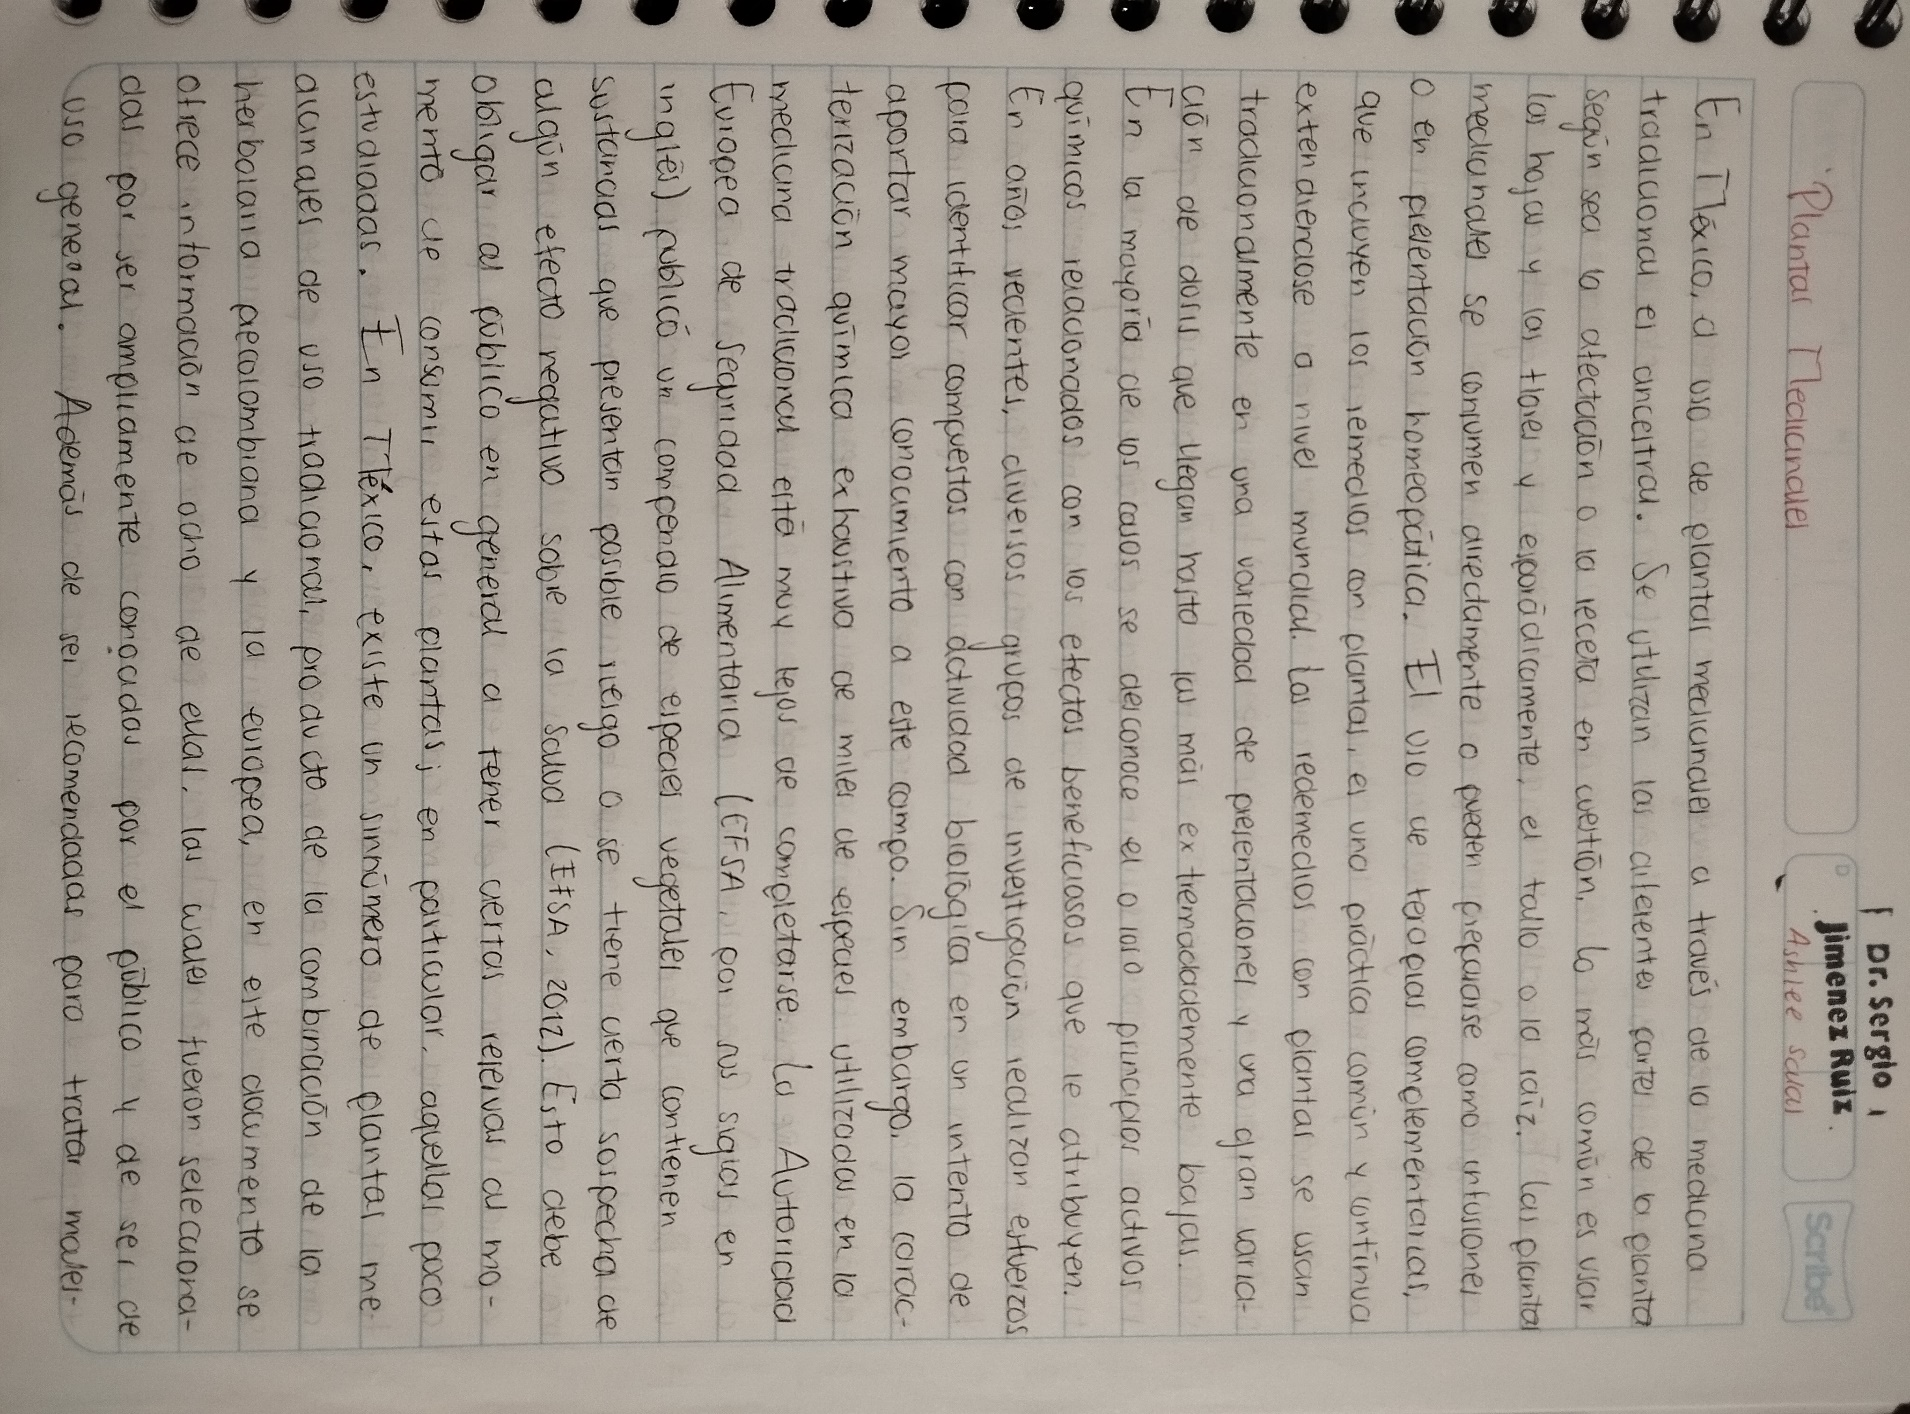 Dr. Sergio
Jimenez Ruiz.
Plantas Medicinales
Ashlee Salas
Scribe
En México, el uso de plantas medicinales a través de la medicina
tradicional es ancestral. Se utilizan las diferentes partes de la planta
según sea la afectación o la receta en cuestión. Lo más común es usar
las hojas y las flores y esporádicamente, el tallo o la raíz. Las plantas
medicinales se consumen directamente o pueden prepararse como infusiones
o en presentación homeopática. El uso de terapias complementarias,
que incluyen los remedios con plantas, es una práctica común y continua
extendienclose a nivel mundial. Los redemedios con plantas se usan
tradicionalmente en una variedad de presentaciones y una gran varia-
ción de dosis que llegan hasta las más extremadademente bajas.
En la mayoría de los casos se desconoce el o los principios activos
químicos relacionados con los efectos beneficiosos que se atribuyen.
En años recientes, diversos grupos de investigación realizan esfuerzos
para identificar compuestos con actividad biológica en un intento de
aportar mayor conocimiento a este campo. Sin embargo, la carac-
terización química exhaustiva de miles de especies utilizadas en la
medicina tradicional está muy lejos de completarse. La Autoridad
Europea de Seguridad Alimentaria (EFSA, por sus siglas en
inglés) publicó un compendio de especies vegetales que contienen
sustancias que presentan posible riesgo o se tiene cierta sospecha de
algún efecto negativo sobre la salud (EFSA, 2012). Esto debe
obligar al público en general a tener ciertas reservas al mo-
mento de consumir estas plantas; en particular, aquellas poco
estudiadas. En México, existe un sinnúmero de plantas me
dicinales de uso tradicional, producto de la combinación de la
herbolaria precolombiana y la europea, en este documento se
ofrece información de ocho de ellas, las cuales fueron selecciona-
das por ser ampliamente conocidas por el público y de ser de
uso general. Además de ser recomendadas para tratar males-